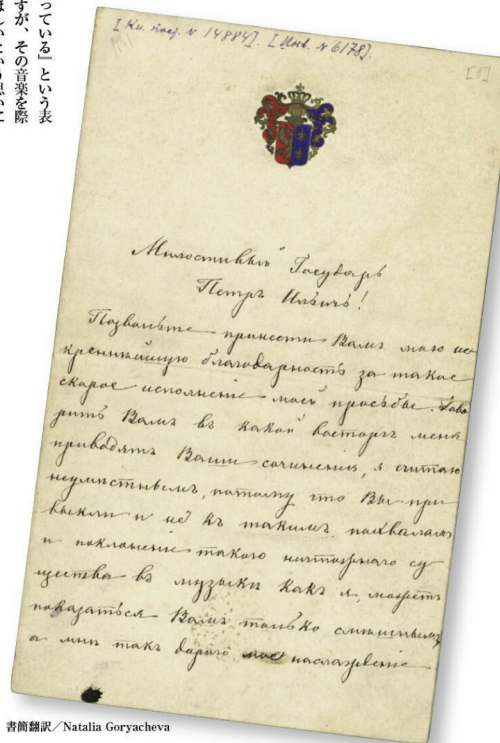 っている』という表
すが、その音楽を際
[Кн. пост. N 14884]. [Инв. N 6178].
[1]
Милостивый Государь
Петръ Ильичъ!
Позвольте принести Вамъ мою ис
креннѣйшую благодарность за такое
скорое исполненіе моей просьбы. Гово
рить Вамъ въ какой восторгъ меня
приводятъ Ваши сочиненія, я считаю
неумѣстнымъ, потому что Вы при
выкли и не къ такимъ похваламъ
и поклоненіе такого ничтожнаго су
щества въ музыки какъ я, можетъ
показаться Вамъ только смѣшнымъ,
а мнѣ такъ дорого мое наслажденіе
書簡翻訳／Natalia Goryacheva